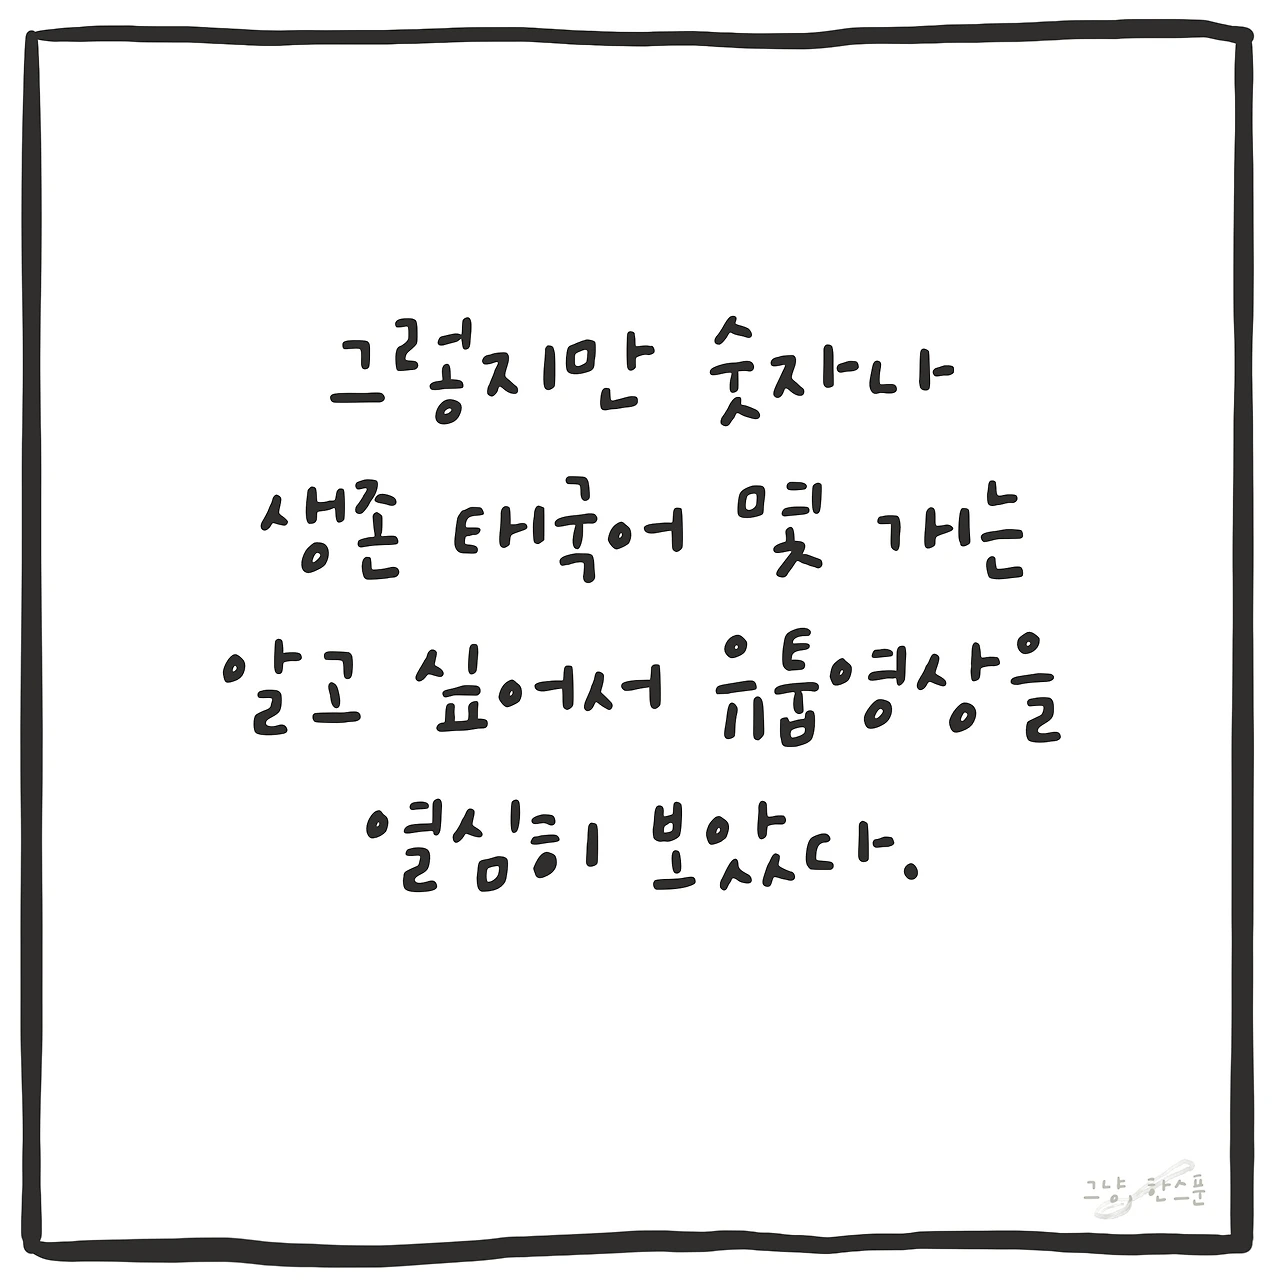 그렇지만 숫자나
생존 태국어 몇 개는
알고 싶어서 유튭영상을
열심히 보았다.
그냥, 한스푼